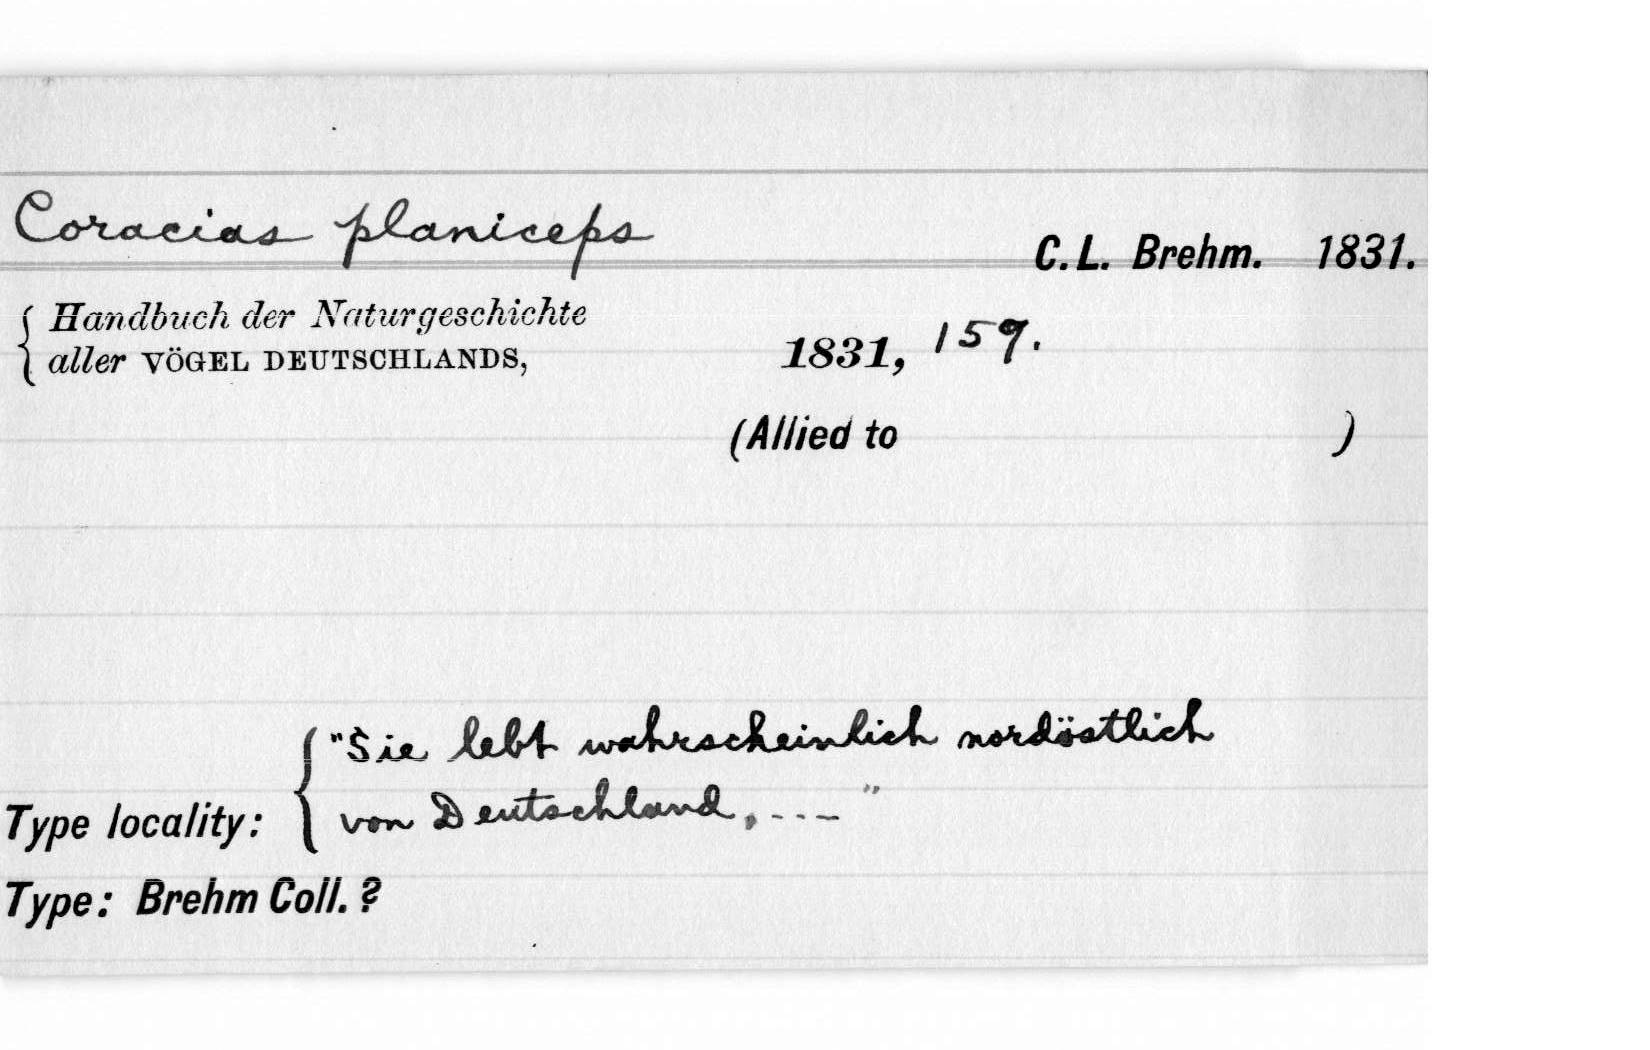 Coracias planiceps
C. L. Brehm. 1831.
Handbuch der Naturgeschichte
aller VÖGEL DEUTSCHLANDS,
1831, 159.
(Allied to )
"Sie lebt wahrscheinlich nordöstlich
von Deutschland, ---"
Type locality:
Type: Brehm Coll. ?